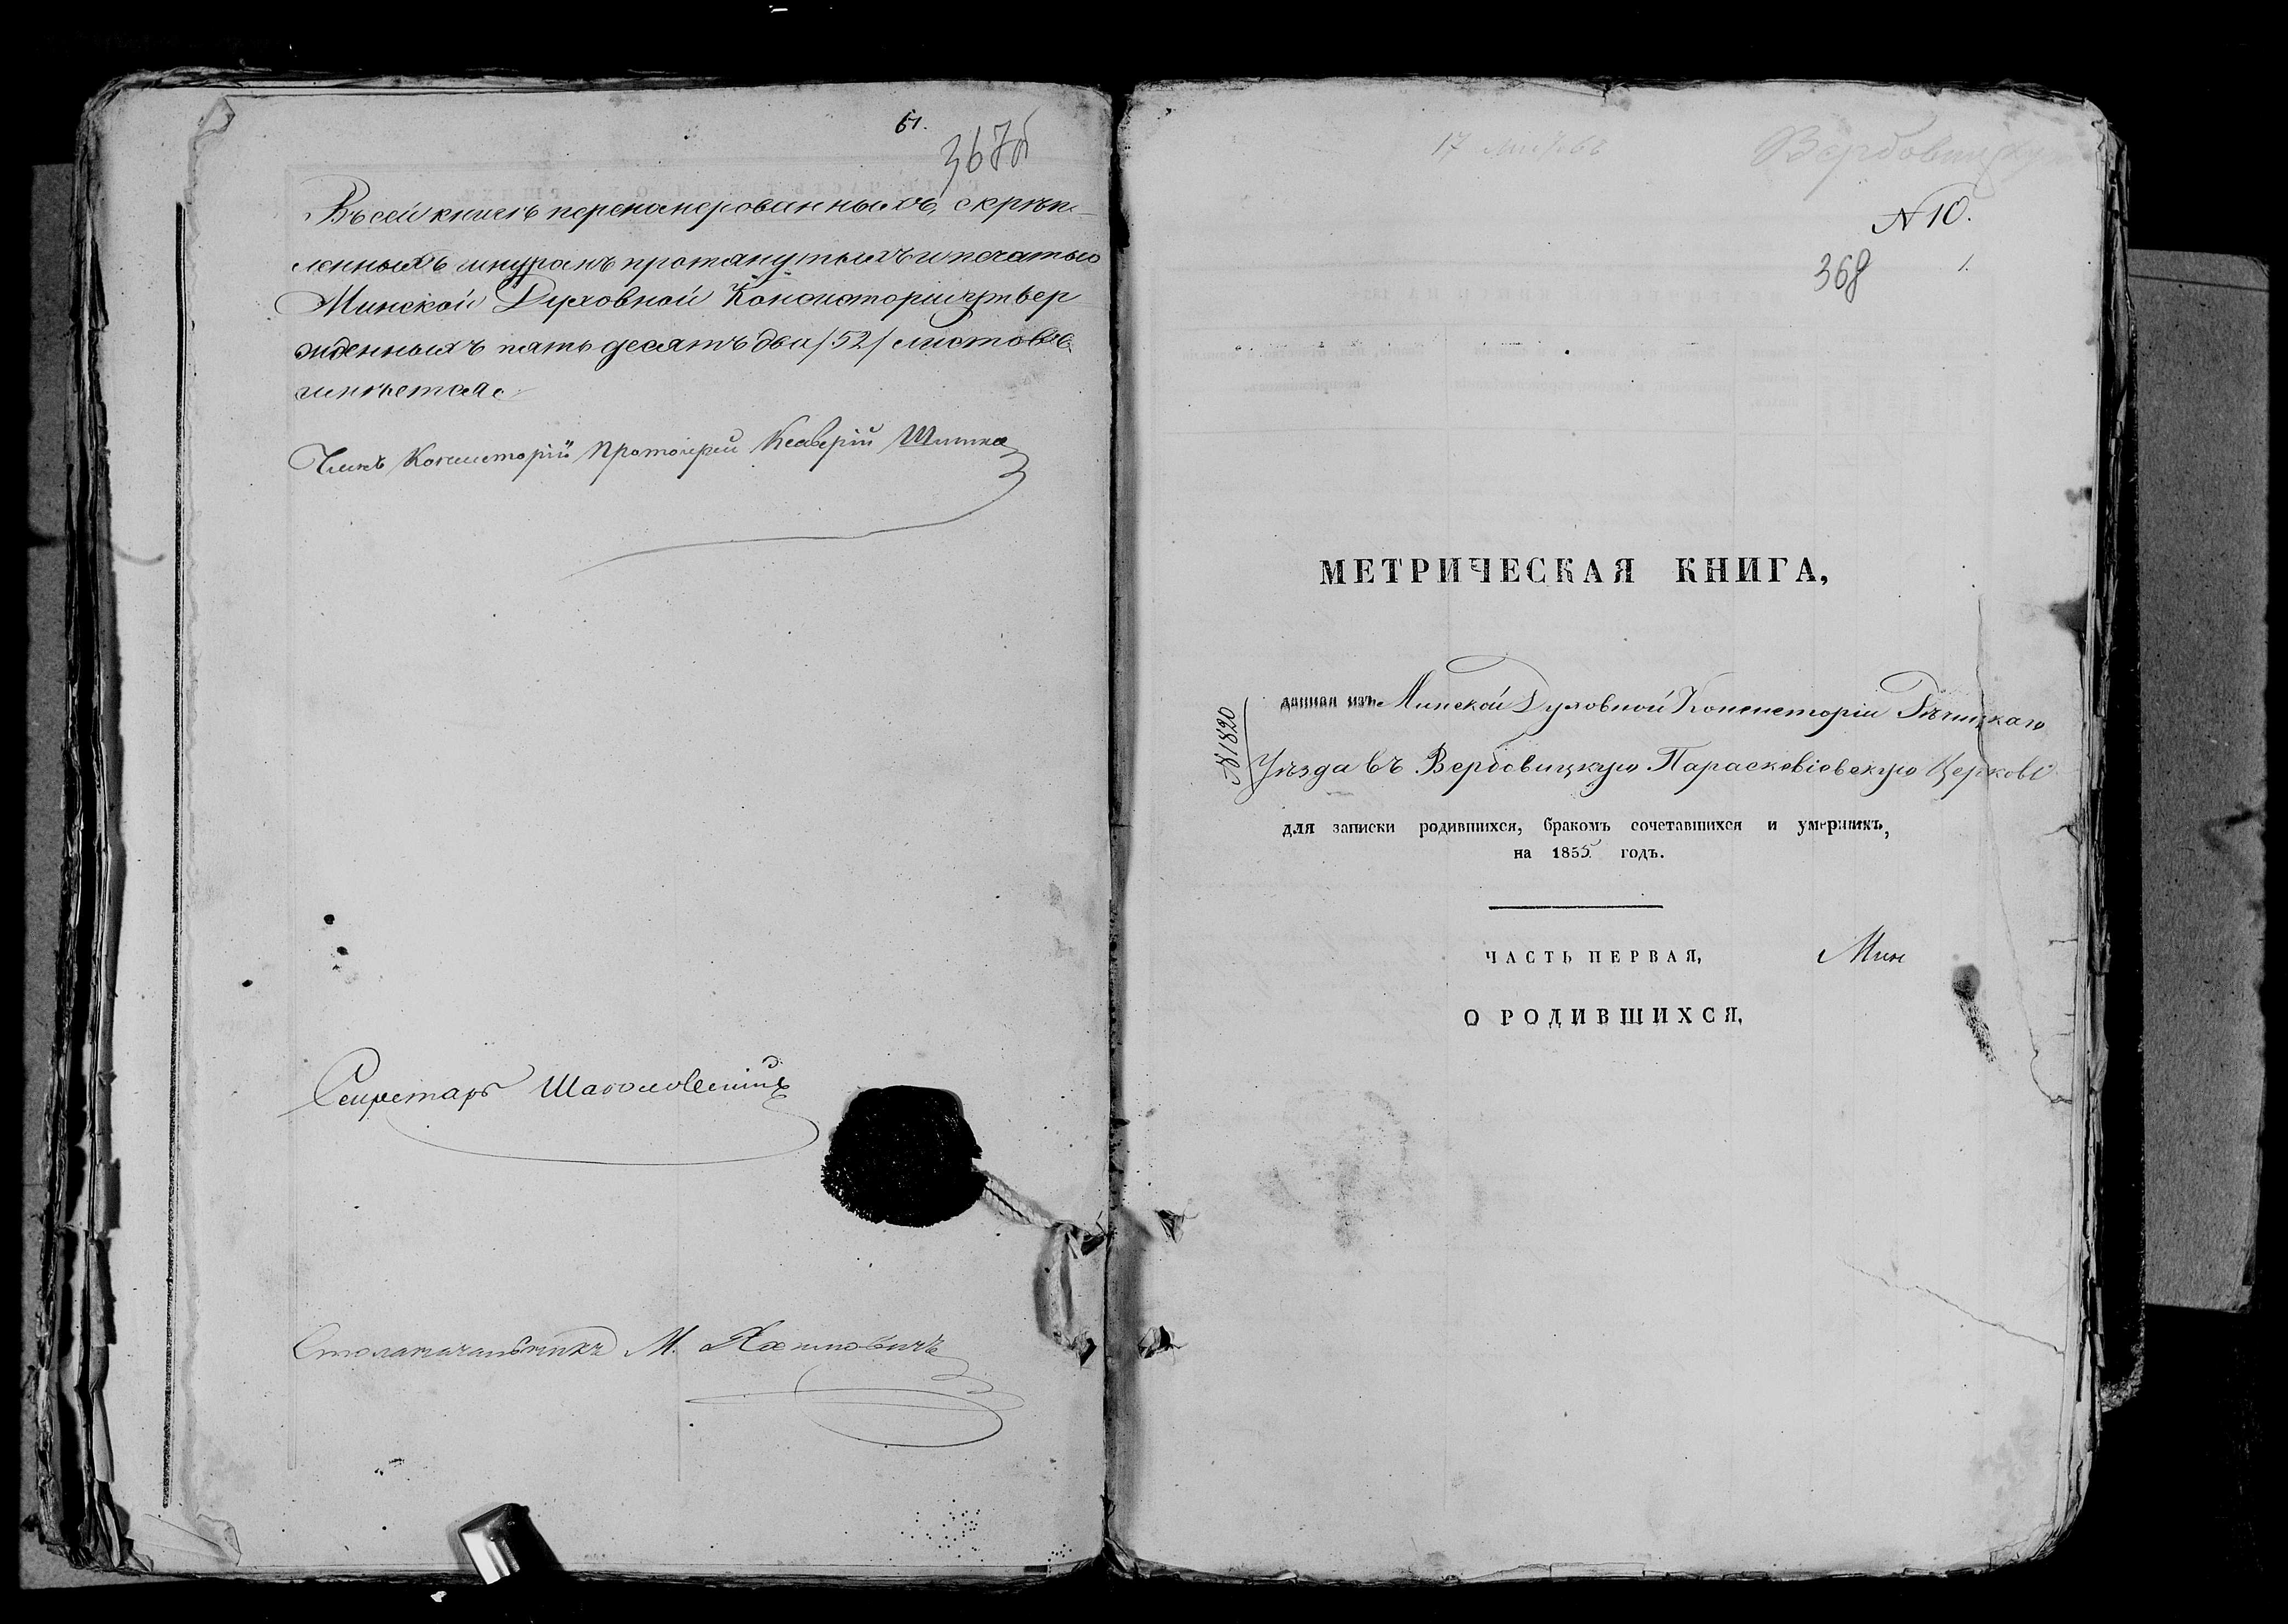 61.
367об
Въ сей книгѣ перенумерованныхъ, скрѣп-
ленныхъ шнуромъ протянутыхъ и печатью
Минской Духовной Консисторіи утвер
жденныхъ пятьдесятъ два /52/ листовъ
имѣется
Членъ Консисторіи Протоіерей Ксаверій
Секретарь
Столоначальникъ М.
Вербовицкую
N 10.
368
1.
МЕТРИЧЕСКАЯ КНИГА,
N 1820
данная изъ Минской Духовной Консисторіи Рѣчицкаго
Уѣзда въ Вербовицкую Параскевіевскую Церковь
для записки родившихся, бракомъ сочетавшихся и умершихъ,
на 1855 годъ.
ЧАСТЬ ПЕРВАЯ,
Мин
О РОДИВШИХСЯ,